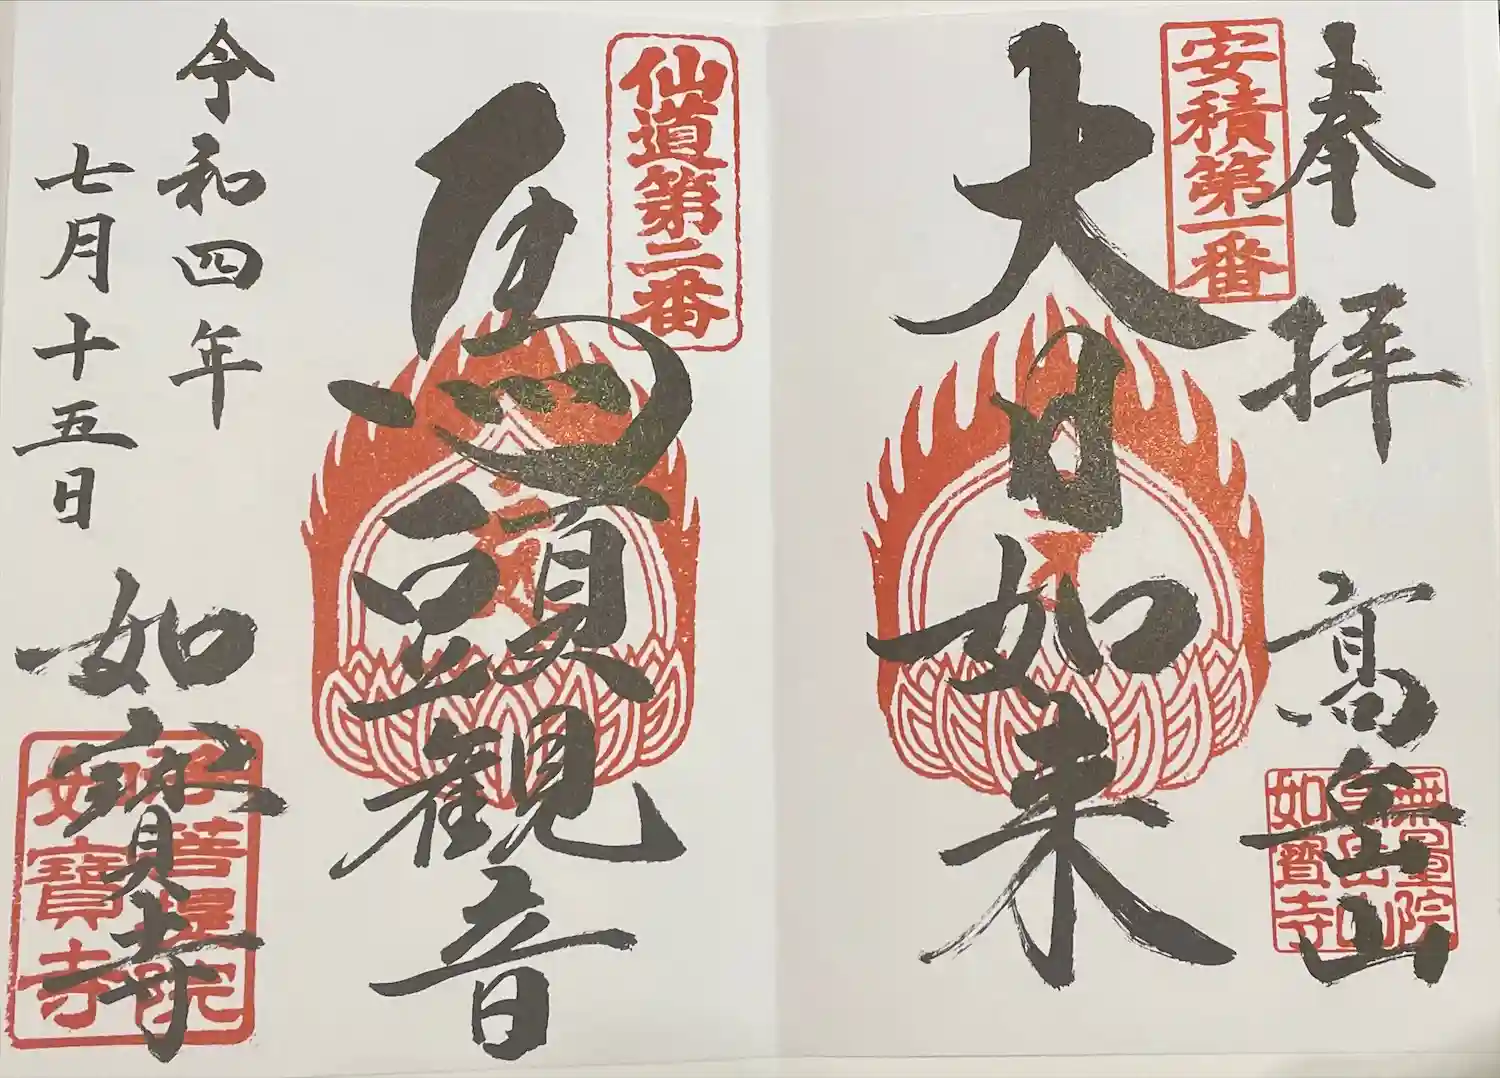 奉拝 高岳山
安積第一番
無量院
岳山
如寶寺
大日如来
仙道第二番
馬頭観音
令和四年
七月十五日
如寶寺
菩提院
如寶寺